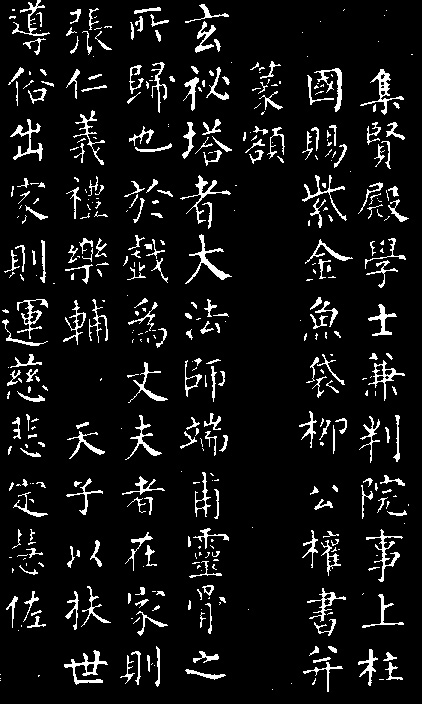 集賢殿學士兼判院事上柱
國賜紫金魚袋柳公權書并
篆額
玄祕塔者大法師端甫靈骨之
所歸也於戲為丈夫者在家則
張仁義禮樂輔天子以扶世
導俗出家則運慈悲定慧佐